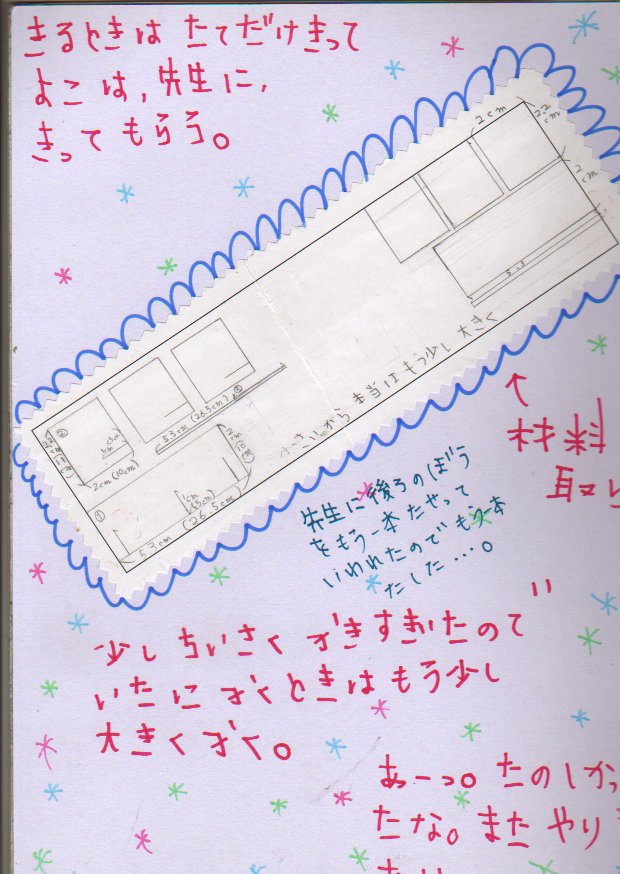 きるときは たてだけきって
よこは、先生に、
きってもらう。
2cm
2.2cm
2cm
5.3
小さいから 本当はもう少し大きく
5.3cm (26.5cm)
③
②
1cm (5cm)
2cm (10cm)
2cm (10cm)
1cm (5cm)
①
5.3cm (26.5cm)
↑
材料
取り
先生に後ろのぼう
をもう一本たやって
いわれたのでもう一本
たした…。
少しちいさくがきすぎたので
いたにがくときはもう少し
大きくがく。
あーっ。たのしかっ
たな。また やり